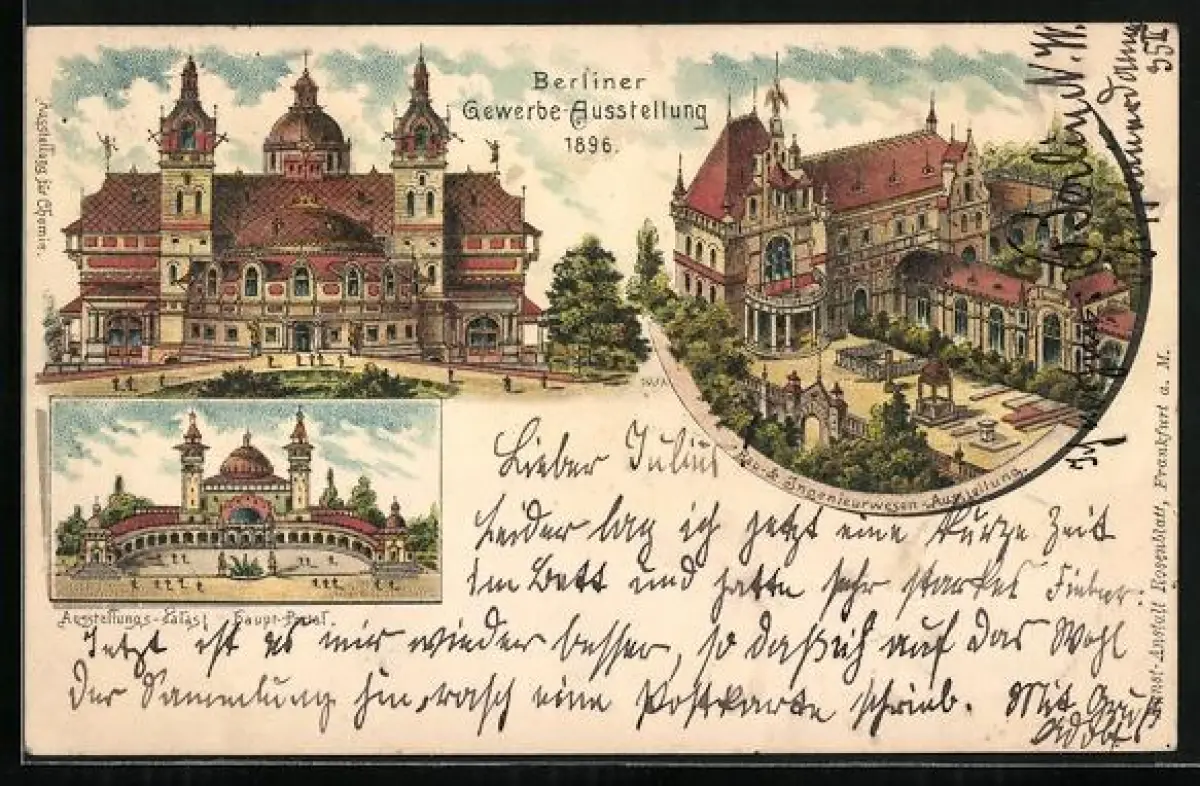 Berliner
Gewerbe-Ausstellung
1896.
Ausstellung für Chemie.
Bau- & Ingenieurwesen-Ausstellung.
Ausstellungs-Palast Haupt-Portal.
Kunst-Anstalt Rosenblatt, Frankfurt a. M.
Berlin N.W.
55II
Lieber Julius
Leider lag ich jetzt eine kurze Zeit
im Bett und hatte sehr starkes Fieber.
Jetzt ist es mir wieder besser, so daß ich auf das Wohl
der Sammlung hin, rasch eine Postkarte schrieb. Mit Gruß
Adolf